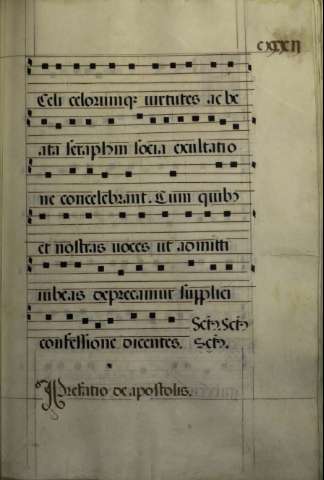 cxxxii
Celi celorumq; uirtutes ac be
ata seraphin socia exultatio
ne concelebrant. Cum quibꝫ
et nostras uoces ut admitti
iubeas deprecamur supplici
Scꝭ, Scꝭ
confessione dicentes. Scꝭ.
Prefatio de apostolis.